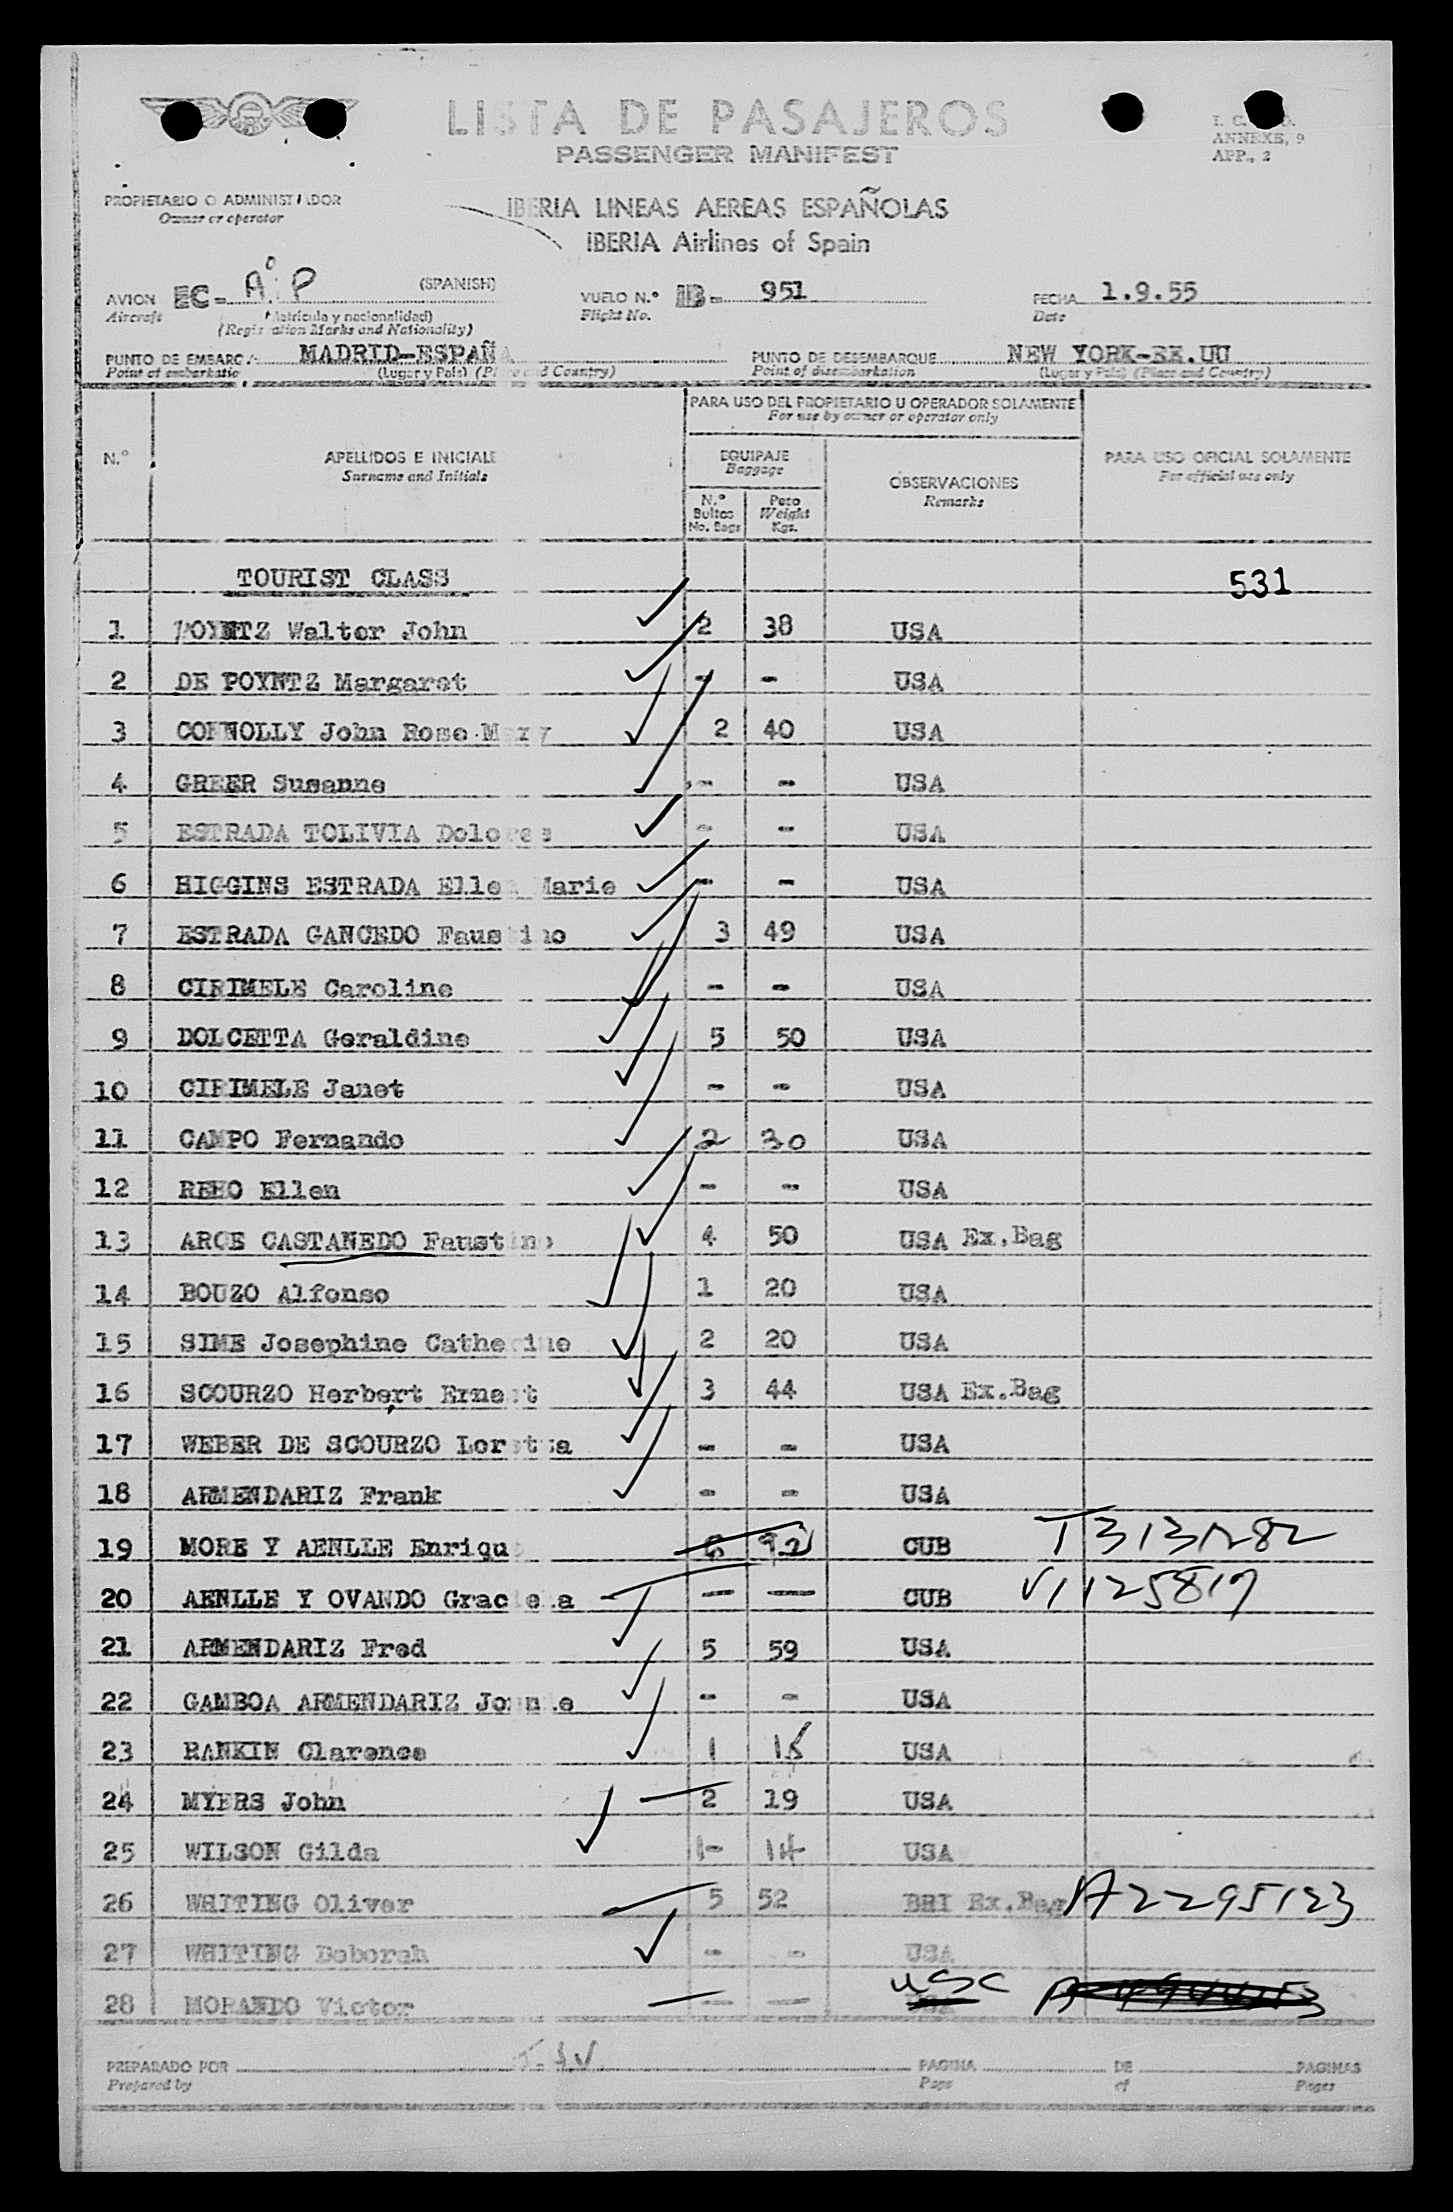 LISTA DE PASAJEROS
PASSENGER MANIFEST
ANNEXE, 9
APP., 2
PROPIETARIO O ADMINISTRADOR
Owner or operator
IBERIA LINEAS AEREAS ESPAÑOLAS
IBERIA Airlines of Spain
AVION EC- (SPANISH) VUELO N.º IB- 951 FECHA 1.9.55
Aircraft (Matricula y nacionalidad) Flight No. Date
(Registration Marks and Nationality)
PUNTO DE EMBARQUE MADRID-ESPAÑA PUNTO DE DESEMBARQUE NEW YORK-EE.UU
Point of embarkation (Lugar y País) (Place and Country) Point of disembarkation (Lugar y País) (Place and Country)
PARA USO DEL PROPIETARIO U OPERADOR SOLAMENTE
For use by owner or operator only
N.º APELLIDOS E INICIALES EQUIPAJE OBSERVACIONES PARA USO OFICIAL SOLAMENTE
Surname and Initials Baggage Remarks For official use only
N.º Bultos Peso
No. Bags Weight Kgs.
TOURIST CLASS 531
1 POYNTZ Walter John 2 38 USA
2 DE POYNTZ Margaret - - USA
3 CONNOLLY John Rose Mary 2 40 USA
4 GREER Susanne - - USA
5 ESTRADA TOLIVIA Dolores - - USA
6 HIGGINS ESTRADA Ellen Marie - - USA
7 ESTRADA GANCEDO Faustino 3 49 USA
8 CIRIMELE Caroline - - USA
9 DOLCETTA Geraldine 5 50 USA
10 CIRIMELE Janet - - USA
11 CAMPO Fernando 2 30 USA
12 REHO Ellen - - USA
13 ARCE CASTANEDO Faustino 4 50 USA Ex.Bag
14 BOUZO Alfonso 1 20 USA
15 SIME Josephine Catherine 2 20 USA
16 SCOURZO Herbert Ernest 3 44 USA Ex.Bag
17 WEBER DE SCOURZO Loretta - - USA
18 ARMENDARIZ Frank - - USA
19 MORE Y AENLLE Enrique 92 CUB T3131282
20 AENLLE Y OVANDO Graciela - - CUB V1125817
21 ARMENDARIZ Fred 5 59 USA
22 GAMBOA ARMENDARIZ Jonnie - - USA
23 RANKIN Clarence 1 15 USA
24 MYERS John 2 19 USA
25 WILSON Gilda 1- 14 USA
26 WHITING Oliver 5 52 BRI Ex.Bag A2295123
27 WHITING Deborah - - USA
28 MORANDO Victor - - USC
PREPARADO POR PAGINA DE PAGINAS
Prepared by Page of Pages